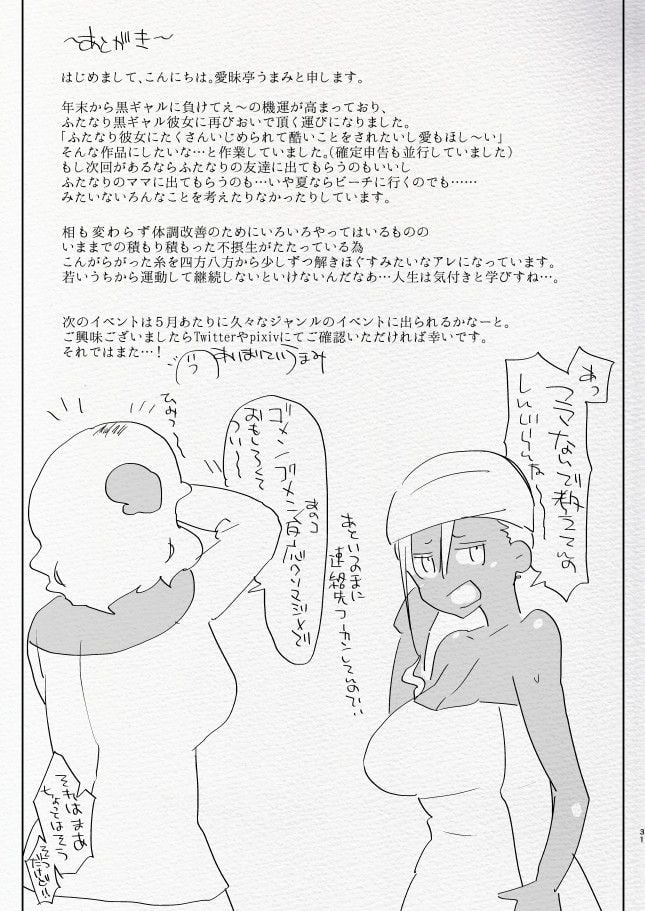 〜あとがき〜
はじめまして、こんにちは。愛昧亭うまみと申します。
年末から黒ギャルに負けてえ〜の機運が高まっており、
ふたなり黒ギャル彼女に再びおいで頂く運びになりました。
「ふたなり彼女にたくさんいじめられて酷いことをされたいし愛もほし〜い」
そんな作品にしたいな…と作業していました。(確定申告も並行していました)
もし次回があるならふたなりの友達に出てもらうのもいいし
ふたなりのママに出てもらうのも…いや夏ならビーチに行くのでも……
みたいないろんなことを考えたりなかったりしています。
相も変わらず体調改善のためにいろいろやってはいるものの
いままでの積もり積もった不摂生がたたっている為
こんがらがった糸を四方八方から少しずつ解きほぐすみたいなアレになっています。
若いうちから運動して継続しないといけないんだなあ…人生は気付きと学びすね…。
次のイベントは5月あたりに久々なジャンルのイベントに出られるかなーと。
ご興味ございましたらTwitterやpixivにてご確認いただければ幸いです。
それではまた…!
あいまいていうまみ
あっ
フツマないで教えてんの
しんじらんな〜
ゴメンゴメン
おもしろくて
つい〜
あのコ
ひみつ〜
あといつのまに
連絡先コーカンしてんので!!
それはまあ
ちょっとはそう
だけど!!
31